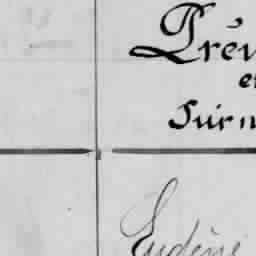 Prén
et
Surn
Eugène